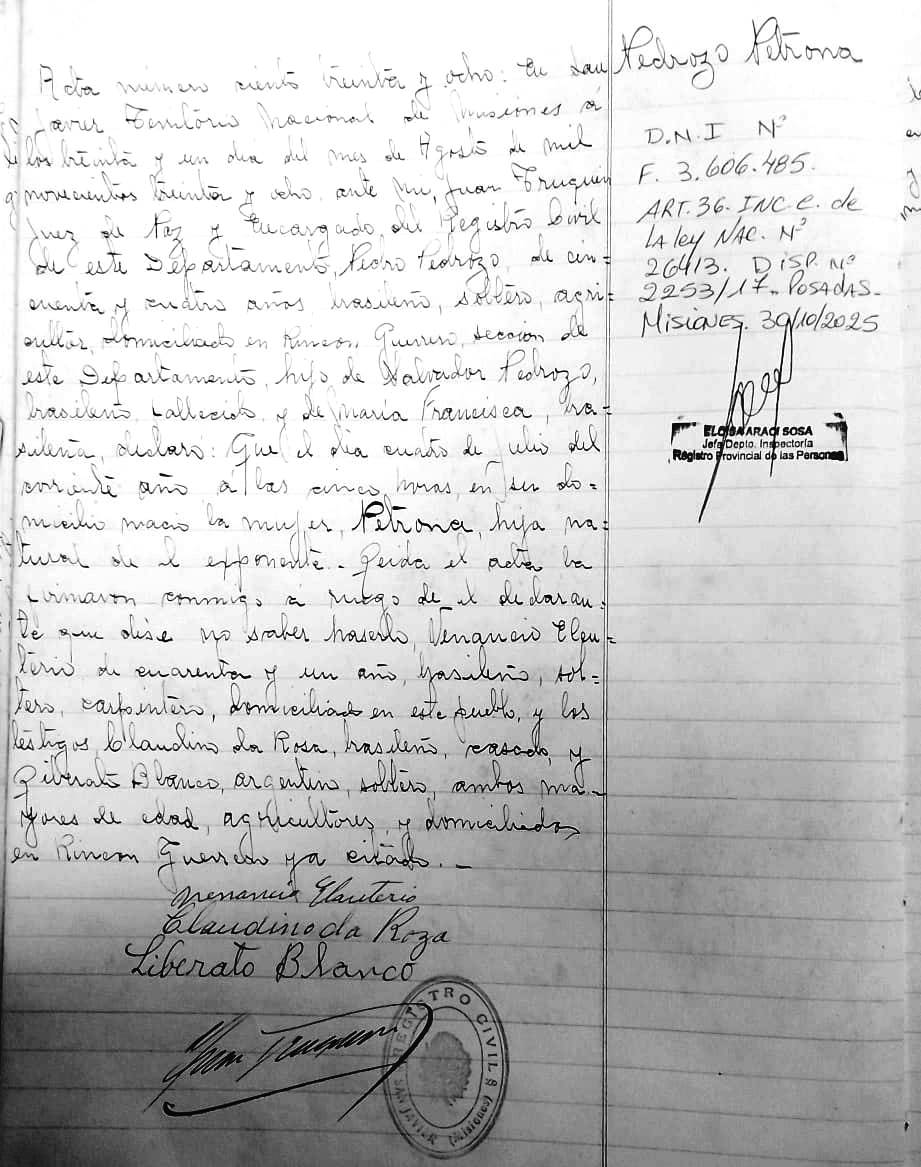 Acta número ciento treinta y ocho: En San
Javier Territorio Nacional de Misiones á
los treinta y un dia del mes de Agosto de mil
novecientos treinta y ocho, ante mi, Juan Truquin
Juez de Paz y Encargado del Registro Civil
de este Departamento, Pedro Pedrozo, de cin=
cuenta y cuatro años, brasileño, soltero, agri=
cultor, domiciliado en Rincon Guerrero, seccion de
este Departamento, hijo de Salvador Pedrozo,
brasileño, fallecido, y de María Francisca, bra=
sileña, declaró: Que el dia cuatro de Julio del
corriente año a las cinco horas, en su do=
micilio nació la mujer, Petrona, hija na=
tural de el exponente. - Leida el acta la
firmaron conmigo a ruego de el declaran=
te que dise no saber haserlo, Venancio Eleu=
terio, de cuarenta y un año, brasileño, sol=
tero, carpintero, domiciliado en este pueblo, y los
testigos, Claudino da Rosa, brasileño, casado, y
Liberato Blanco, argentino, soltero, ambos ma=
yores de edad, agricultores, y domiciliados
en Rincon Guerrero ya citado. -
Venancio Elauterio
Claudino da Roza
Liberato Blanco
Juan Truquin
REGISTRO CIVIL
SAN JAVIER (Misiones)
Pedrozo Petrona
D.N.I Nº
F. 3.606.485.
ART. 36. INC. e. de
LA ley NAC. Nº
26413. DISP. Nº
2253/17. POSADAS-
MISIONES. 30/10/2025
ELOISA ARACI SOSA
Jefa Depto. Inspectoría
Registro Provincial de las Personas